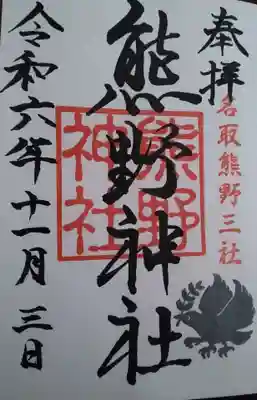 奉拝
名取熊野三社
熊野神社
熊野
神社
令和六年十一月三日